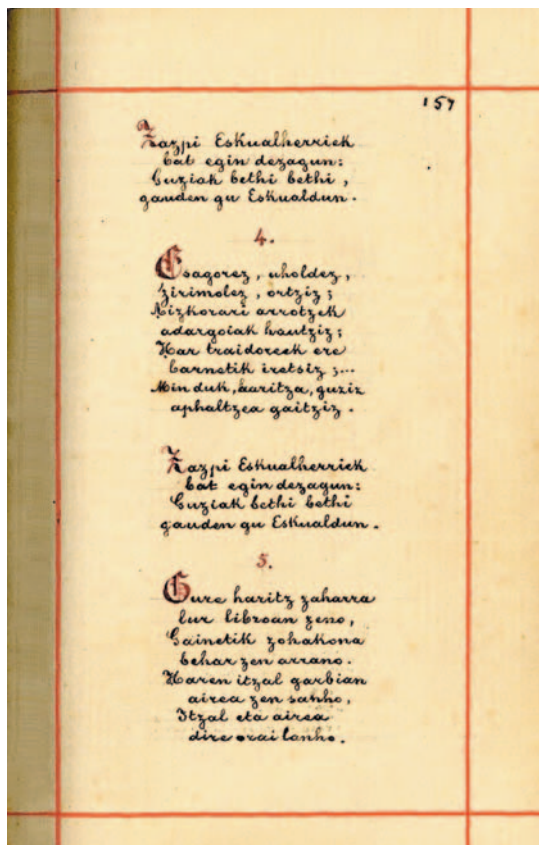 157
Zazpi Eskualherriek
bat egin dezagun:
Guziak bethi bethi,
gauden gu Eskualdun.
4.
Osagorez, uholdez,
zirimolez, ortziz;
Aizkorari arrotzek
adargoiak hautziz;
Har traidoreek ere
barnetik iretsiz;...
Min duk, haritza, guziz
aphaltzea gaitziz.
Zazpi Eskualherriek
bat egin dezagun:
Guziak bethi bethi
gauden gu Eskualdun.
5.
Gure haritz zaharra
lur libroan zeno,
Gainetik zohakona
behar zen arrano.
Haren itzal garbian
airea zen sanho,
Itzal eta airea
dire orai lanho.